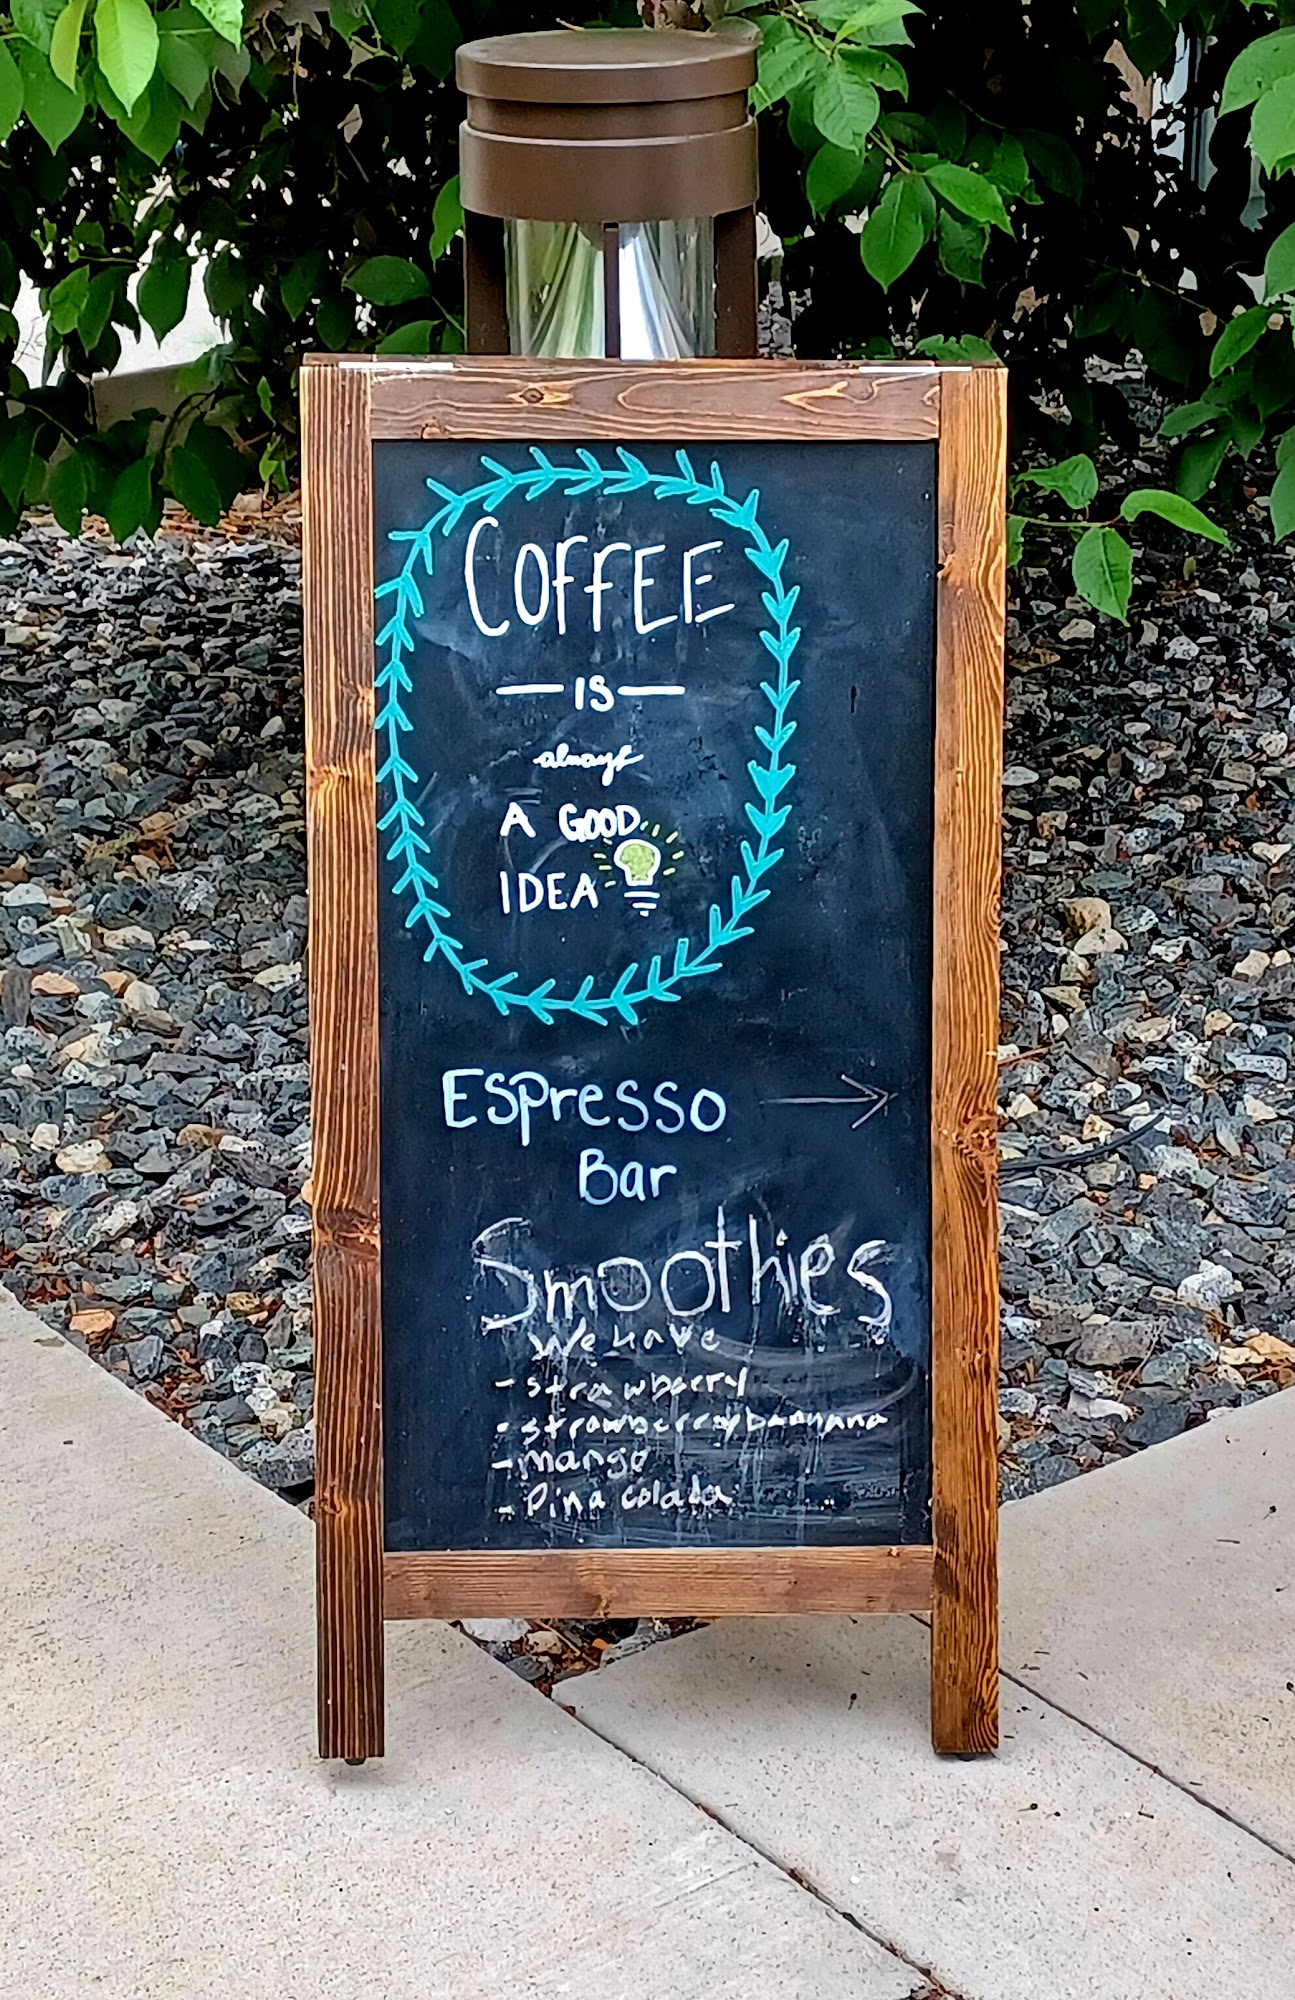 COFFEE
IS
always
A GOOD
IDEA
Espresso
Bar
Smoothies
We have
- strawberry
- strawberry banana
- mango
- Pina colada